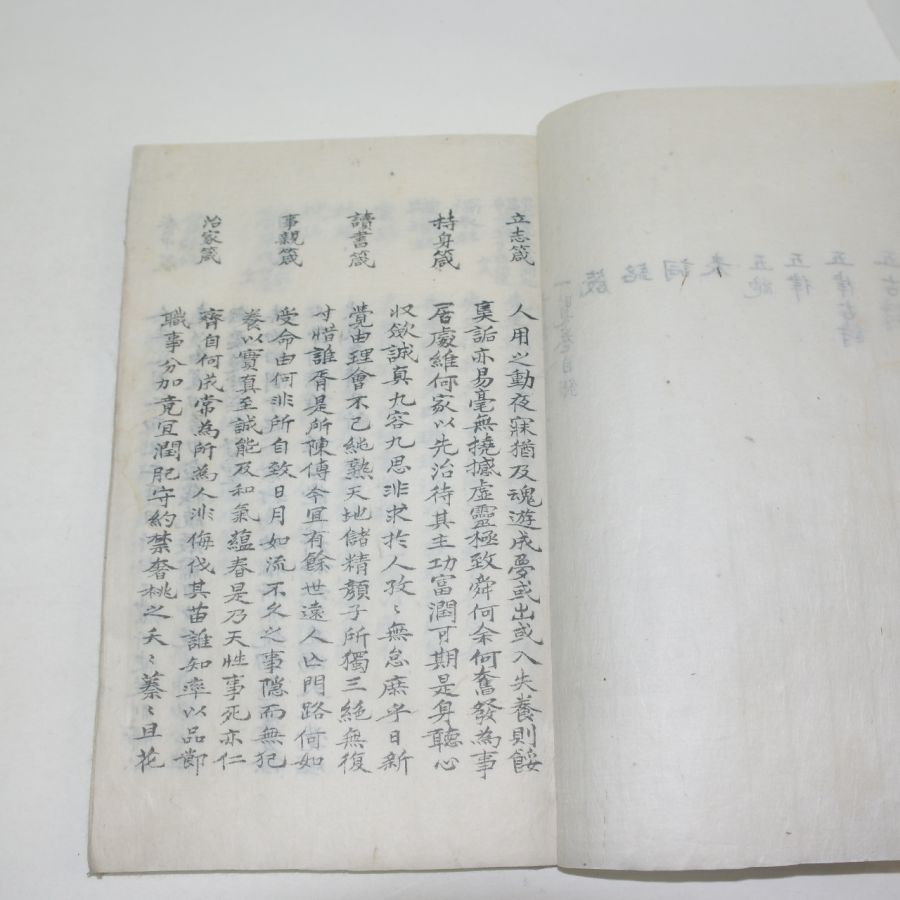 立志箴 人用之動夜寐猶及魂遊成夢或出或入失養則餒
莫詬亦易毫無撓撼虛靈極致舜何余何奮發為事
持身箴 居處維何家以先治待其主功富潤可期是身聽心
收斂誠真九容九思非求於人孜〻無怠庶乎日新
讀書箴 覺由理會不已純熟天地儲精顏子所獨三絶無復
寸惜誰胥是所陳傳今宜有餘世遠人亡門路何如
事親箴 受命由何非所自致日月如流不久之事隱而無犯
養以實真至誠能及和氣蘊春是乃天性事死亦仁
治家箴 齊自何成常為所為人非侮伐其苗誰知率以品節
職事分加竟宜潤肥守約禁奢桃之夭〻蓁〻且花
箴
銘
詞
五絶
五律